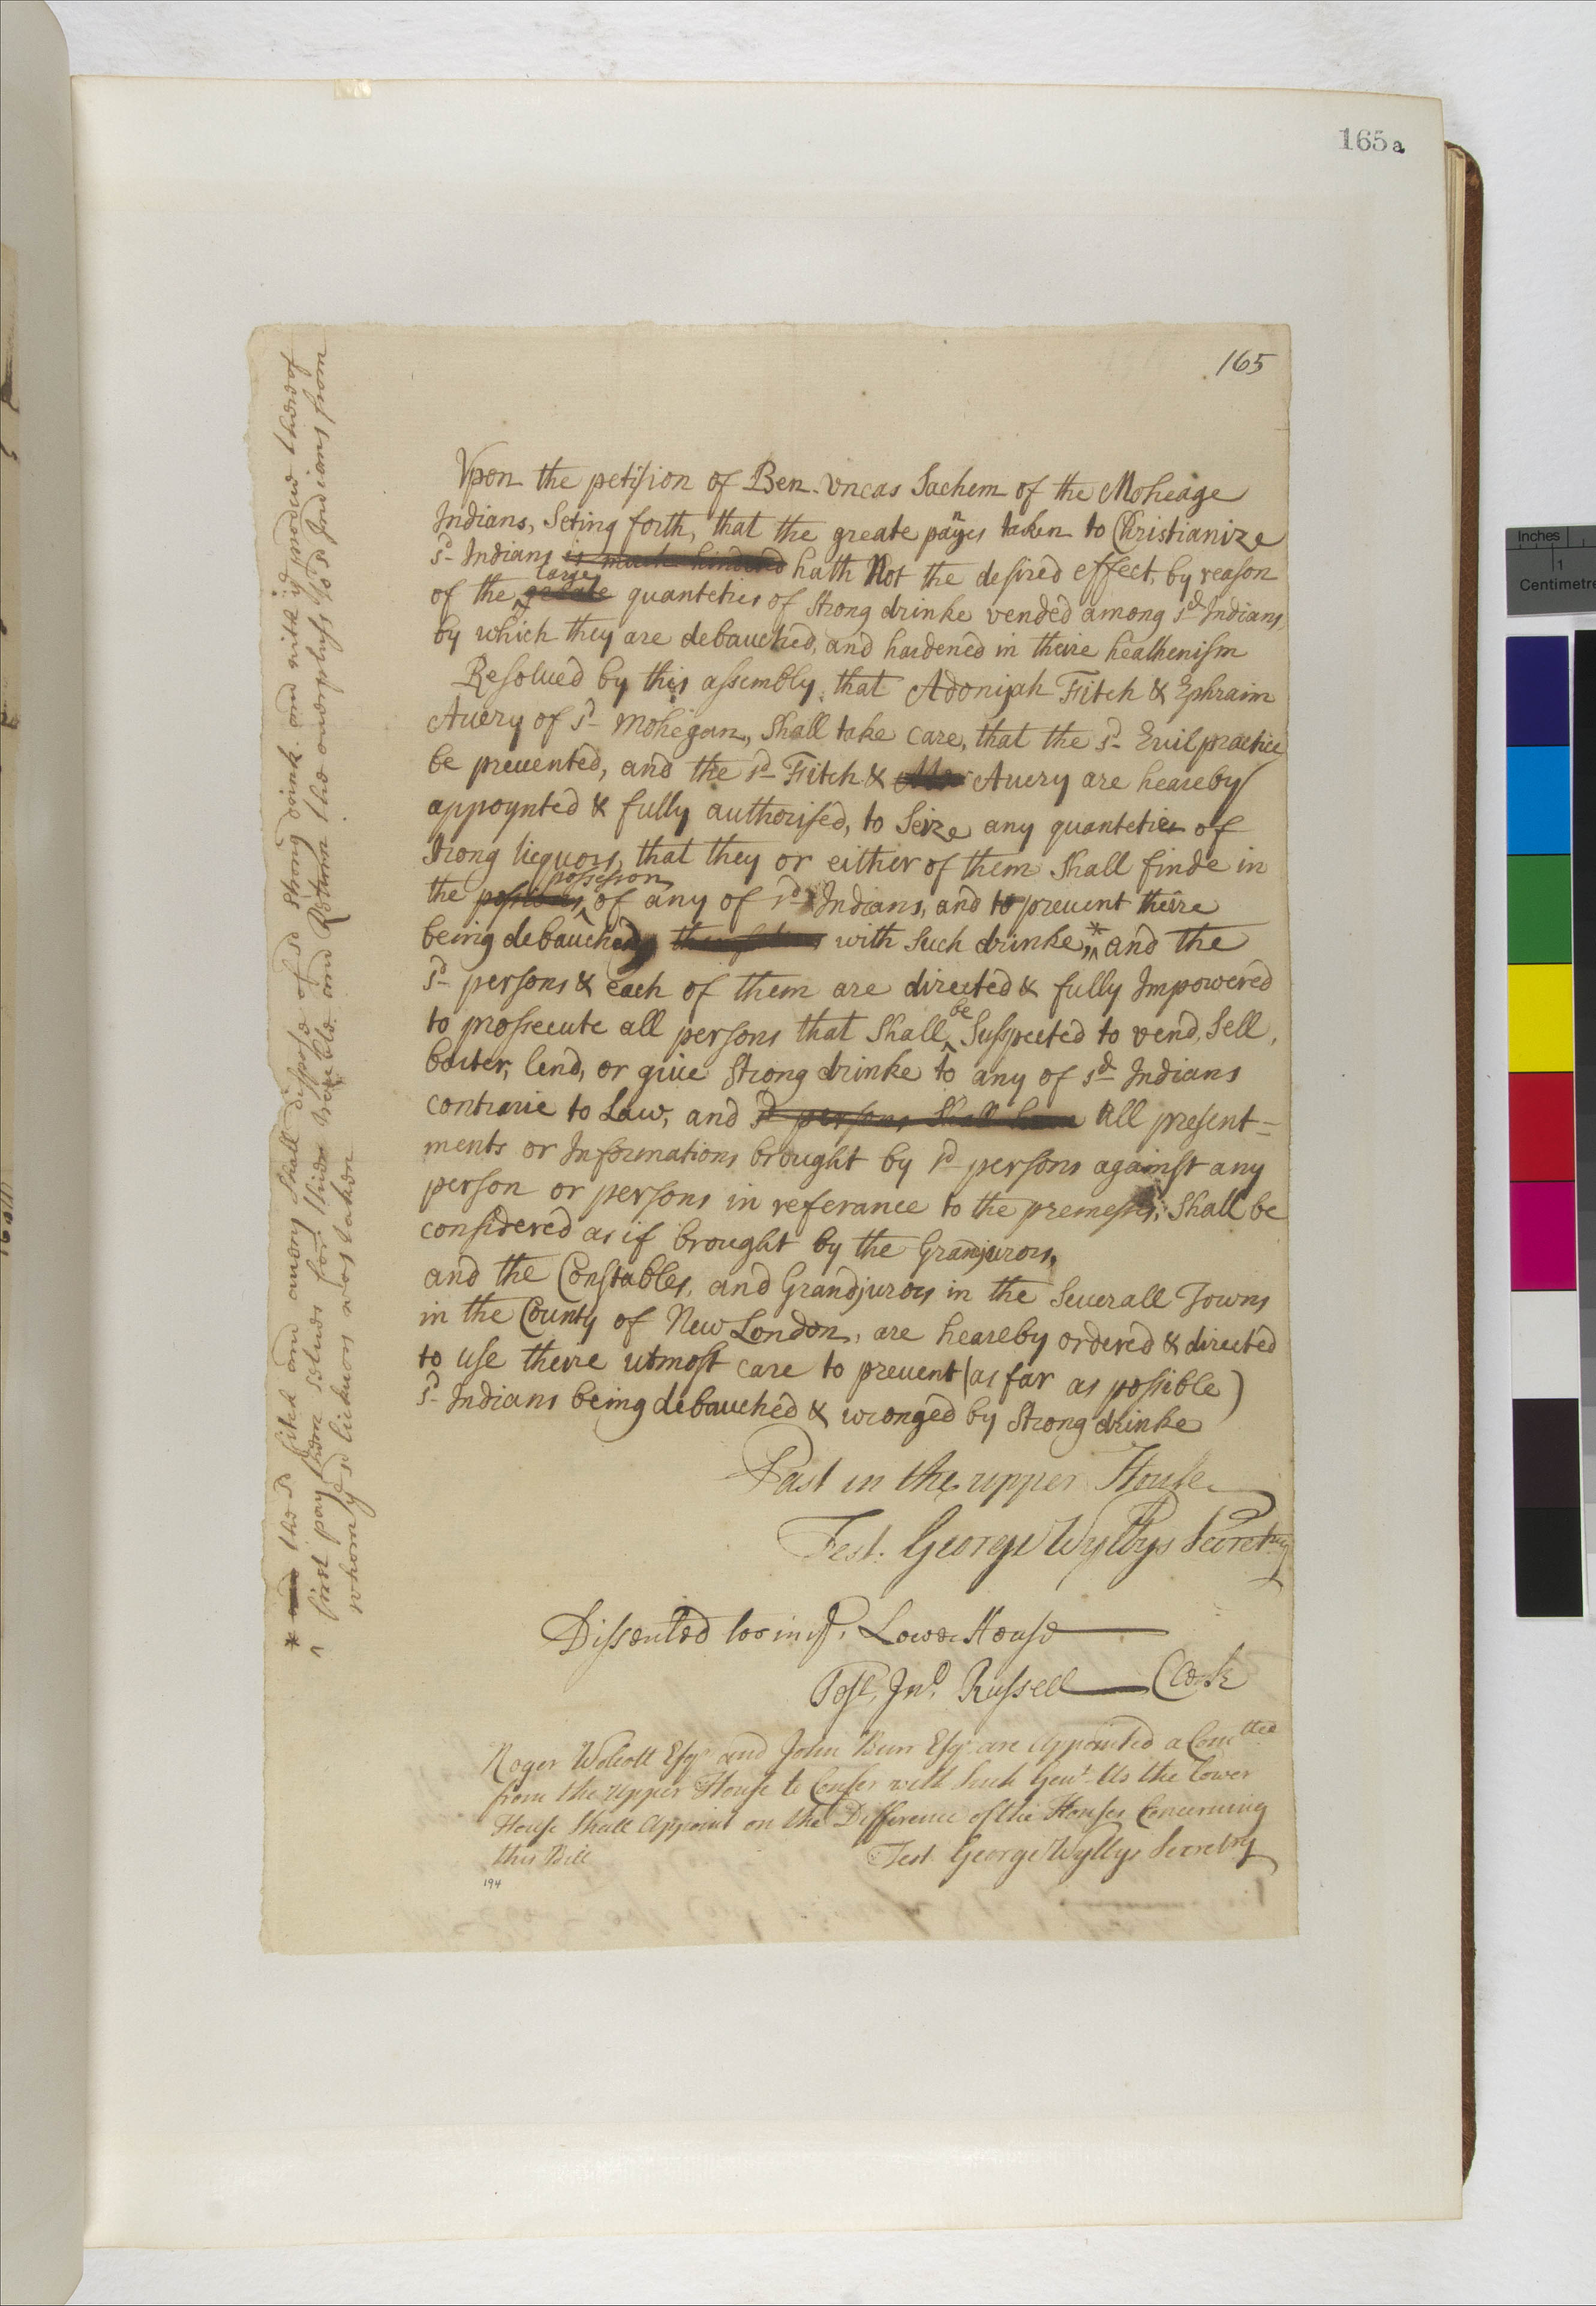 165a
165
Vpon the petision of Ben. Vncas Sachem of the Moheage
Indians, Seting forth, that the greate paynes taken to Christianize
sd Indians is much hindered hath Not the desired effect, by reason
of the greate large quanteties of Strong drinke vended among sd Indians,
by which they are debauched, and hardened in theire heathenism
Resolued by this assembly, that Adonijah Fitch & Ephraim
Auery of sd Mohegan, Shall take care, that the sd Evil practice
be preuented, and the sd Fitch & Auery are heareby
appoynted & fully authorised, to Seize any quanteties of
Strong liequors, that they or either of them Shall finde in
the possesson of any of sd Indians, and to preuent theire
being debauched themselues with Such drinke, * and the
sd persons & each of them are directed & fully Impowered
to prossecute all persons that Shall be Suspected to vend, Sell,
barter, lend, or giue Strong drinke to any of sd Indians
contrarie to Law, and sd persons Shall haue All present=
ments or Informations brought by sd persons against any
person or persons in referance to the premeses, Shall be
considered as if brought by the Grandjurors,
and the Constables, and Grandjurors in the Seuerall Towns
in the County of New London, are heareby ordered & directed
to Use theire utmost care to preuent (as far as possible)
sd Indians being debauched & wronged by Strong drinke
Past in the upper House
Test. George Wyllys Secretry
Dissented to in ye Lower House
Test, Jno. Russell Clerk
Roger Wolcott Esqr and John Burr Esqr are Appointed a Comttee
from the Upper House to Confer with Such Gent. As the Lower
House Shall Appoint on the Difference of the Houses Concerning
this Bill
Test George Wyllys Secretry
194
* and the sd Fitch and Avery Shall dispose of sd Strong drink and with ye produce thereof
^ first pay them selues for their trouble and Return the overplush to sd Indians from
whom ye sd lickuor was taken
Inches
1
Centimetre